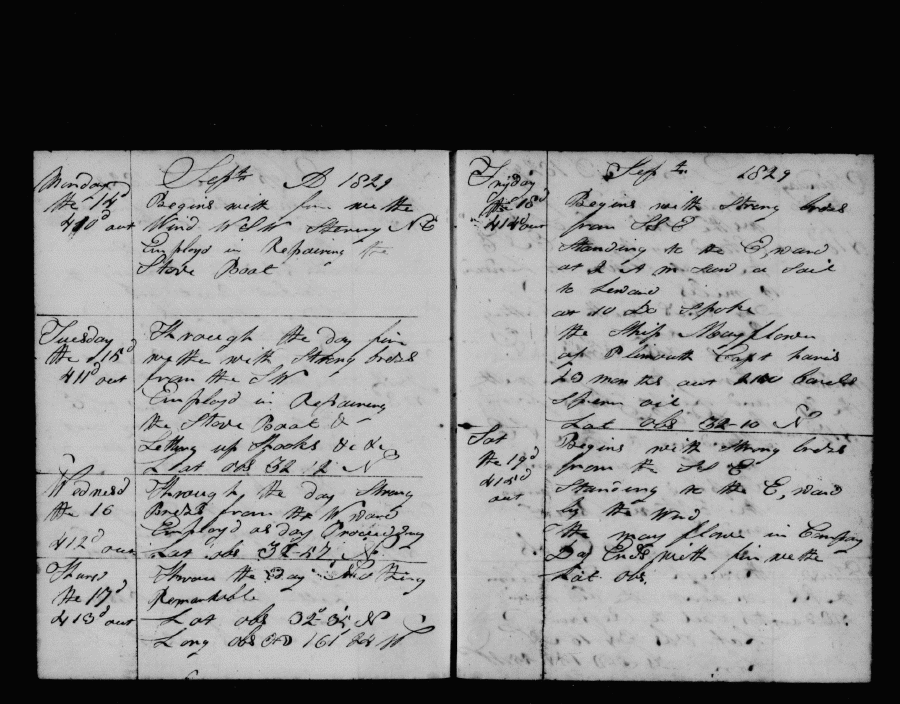 Septr AD 1829
Monday
the 14d
410d out
Begins with fine wethe
Wind WSW Stering NE
Employd in Repairing the
Stove Boat
Tuesday
the 15d
411d out
Through the day fin
wethe with Strong brezs
from the SW
Employd in Repairing
the Stove Boat &
Setting up Shooks &c &c
Lat obs 32 12 N
Wednesd
the 16
412d out
Through the day Strong
Brezs from the W ward
Employd as day Proceeding
Lat obs N
Thursd
the 17d
413d out
Throue the day Nothing
Remarkable
Lot obs 32-35 N
Long obs 161 W
Septr 1829
Fryday
the 18d
414d out
Begins with Strong brezs
from SSE
Standing to the E, ward
at 2 A m saw a Sail
to Leward
at 10 Do Spoke
the Ship Mayflower
of Plimouth Capt haris
23 months out barels
Sperm oil
Lat obs 32-10 N
Sat
the 19d
415d
out
Begins with Strong brezs
from the SE
Standing to the E, ward
by the Wind
the may flower in Compay
Day Ends with fin wethe
Lat obs